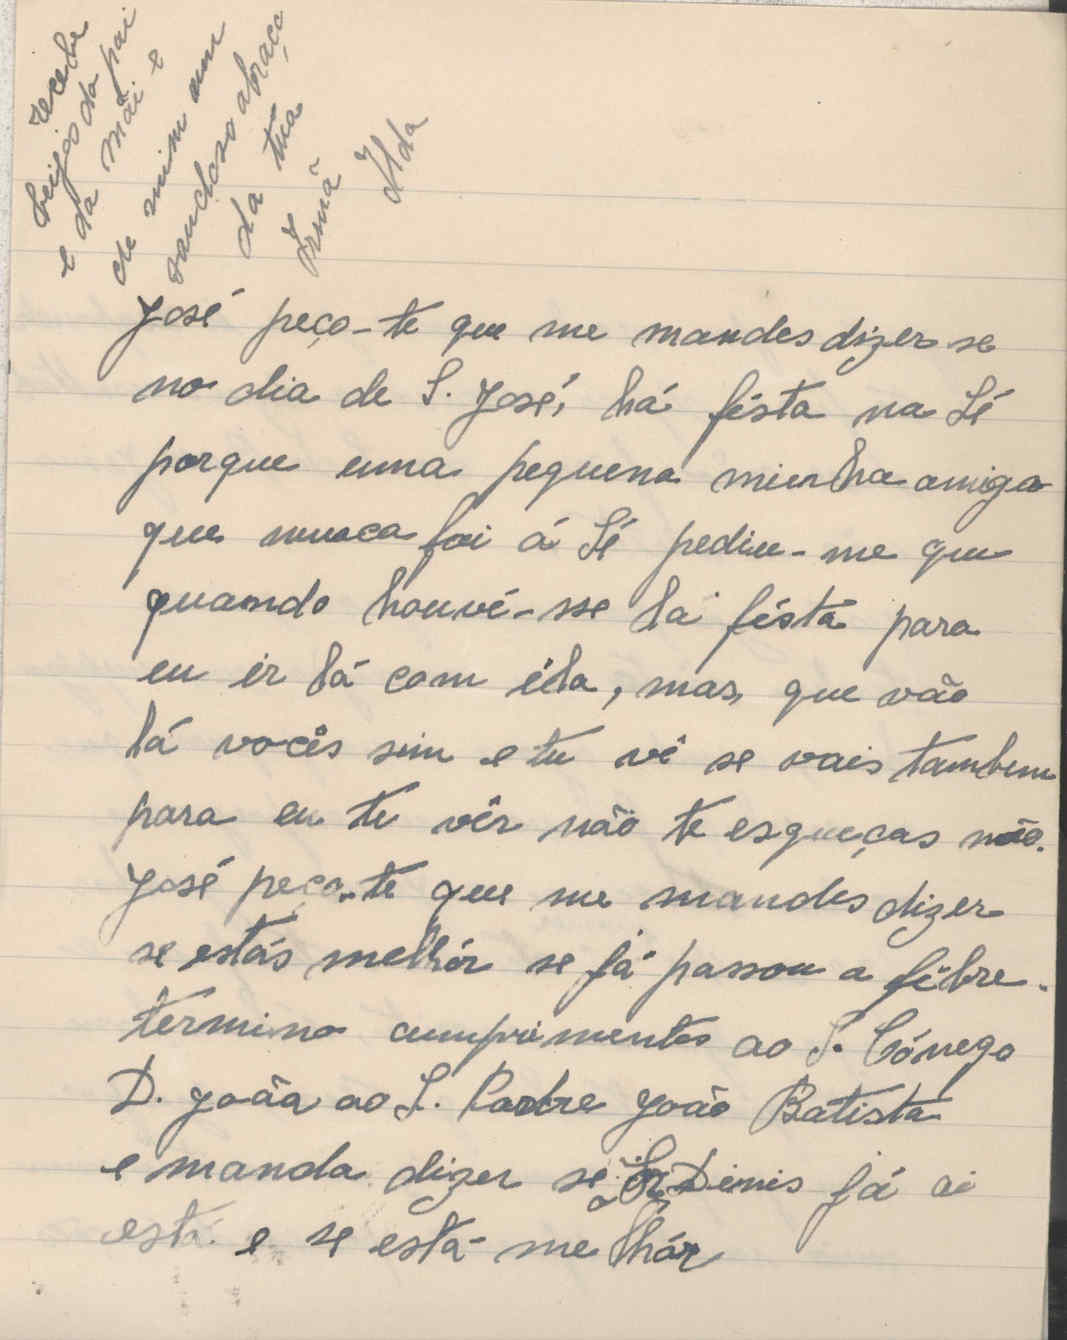 José peço-te que me mandes dizer se
no dia de S. José, há fésta na Sé
porque uma pequena minha amiga
que nunca foi á Sé pediu-me que
quando houvé-sse lá fésta para
eu ir lá com éla, mas que vão
lá vocês sim e tu vê se vais tambem
para eu te vêr não te esqueças não.
José peço-te que me mandes dizer
se estás melhór se já passou a fébre.
termino cumprimentos ao S. Cónego
D. João ao S. Padre João Batista
e manda dizer se o Sr Dinis já ai
está e se está melhór
recebe
beijos do pai
e da mãi e
de mim um
saudoso abraço
da tua
Irmã
Ilda